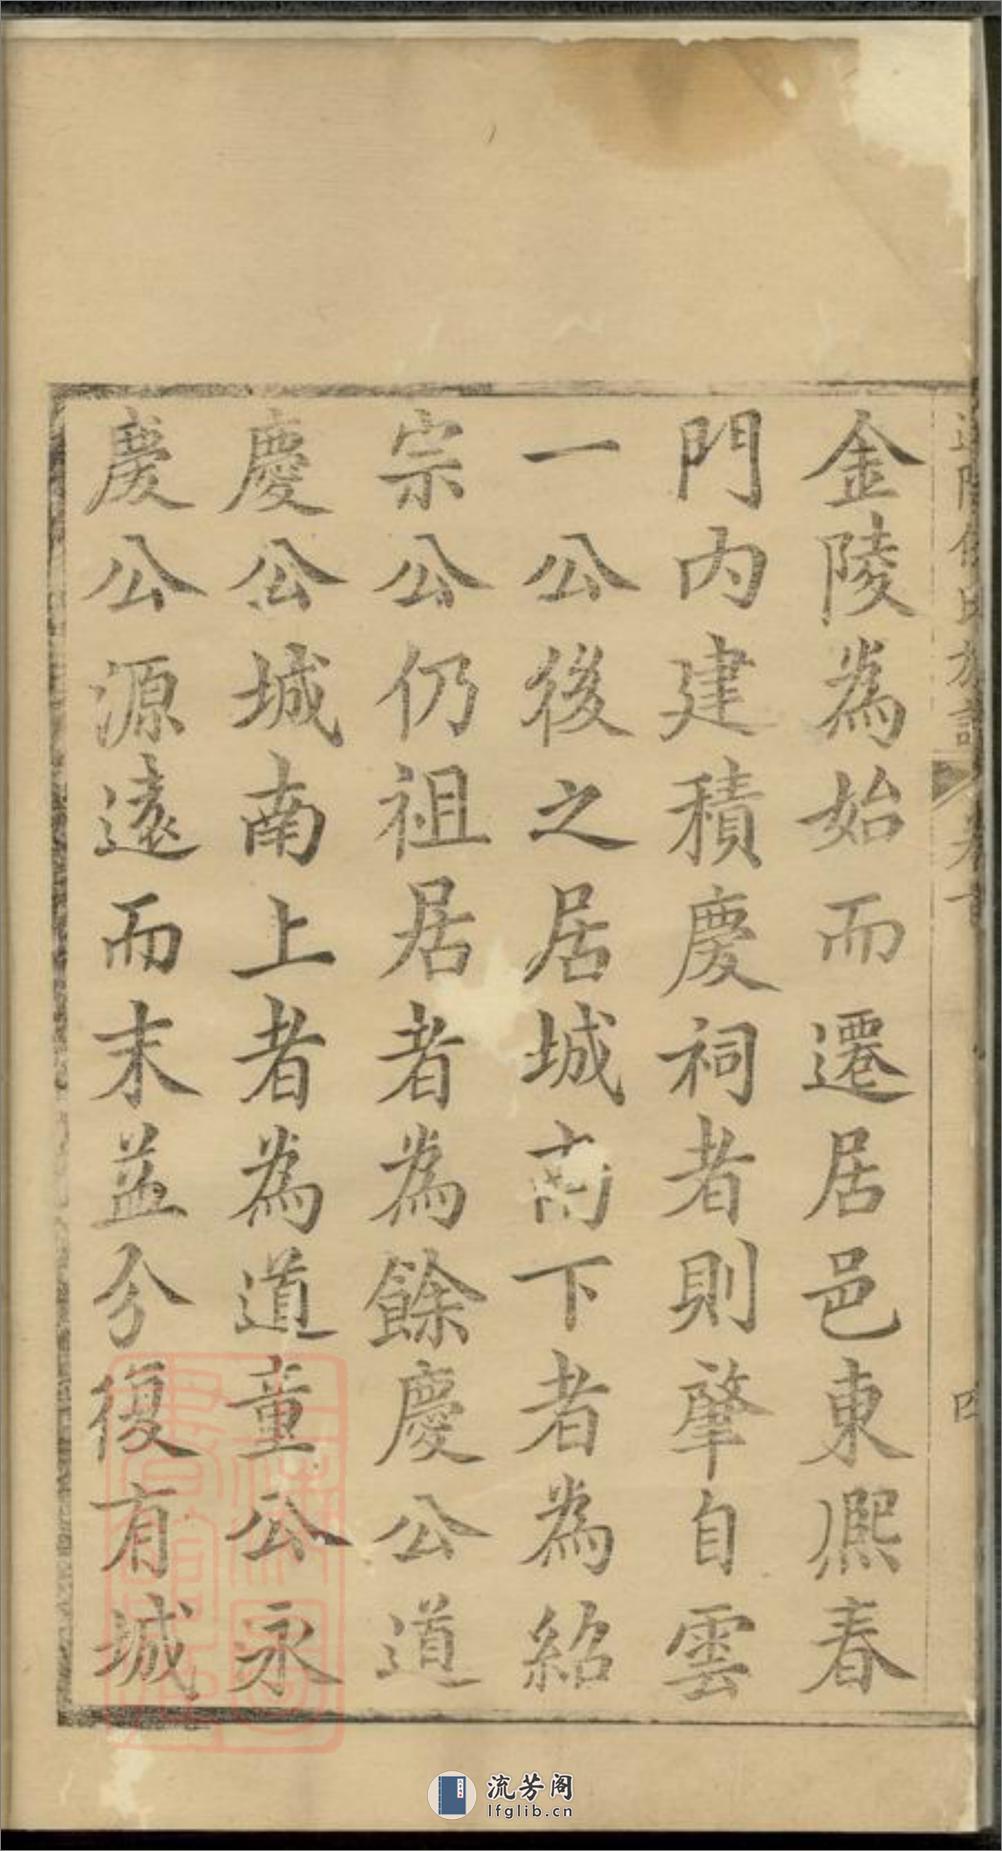 金陵為始而遷居邑東熈春
門內建積慶祠者則肇自雲
一公後之居城南下者為紹
宗公仍祖居者為餘慶公道
慶公城南上者為道童公永
慶公源遠而末益分復有城
氏族譜
卷首
四
流芳阁
lfglib.cn